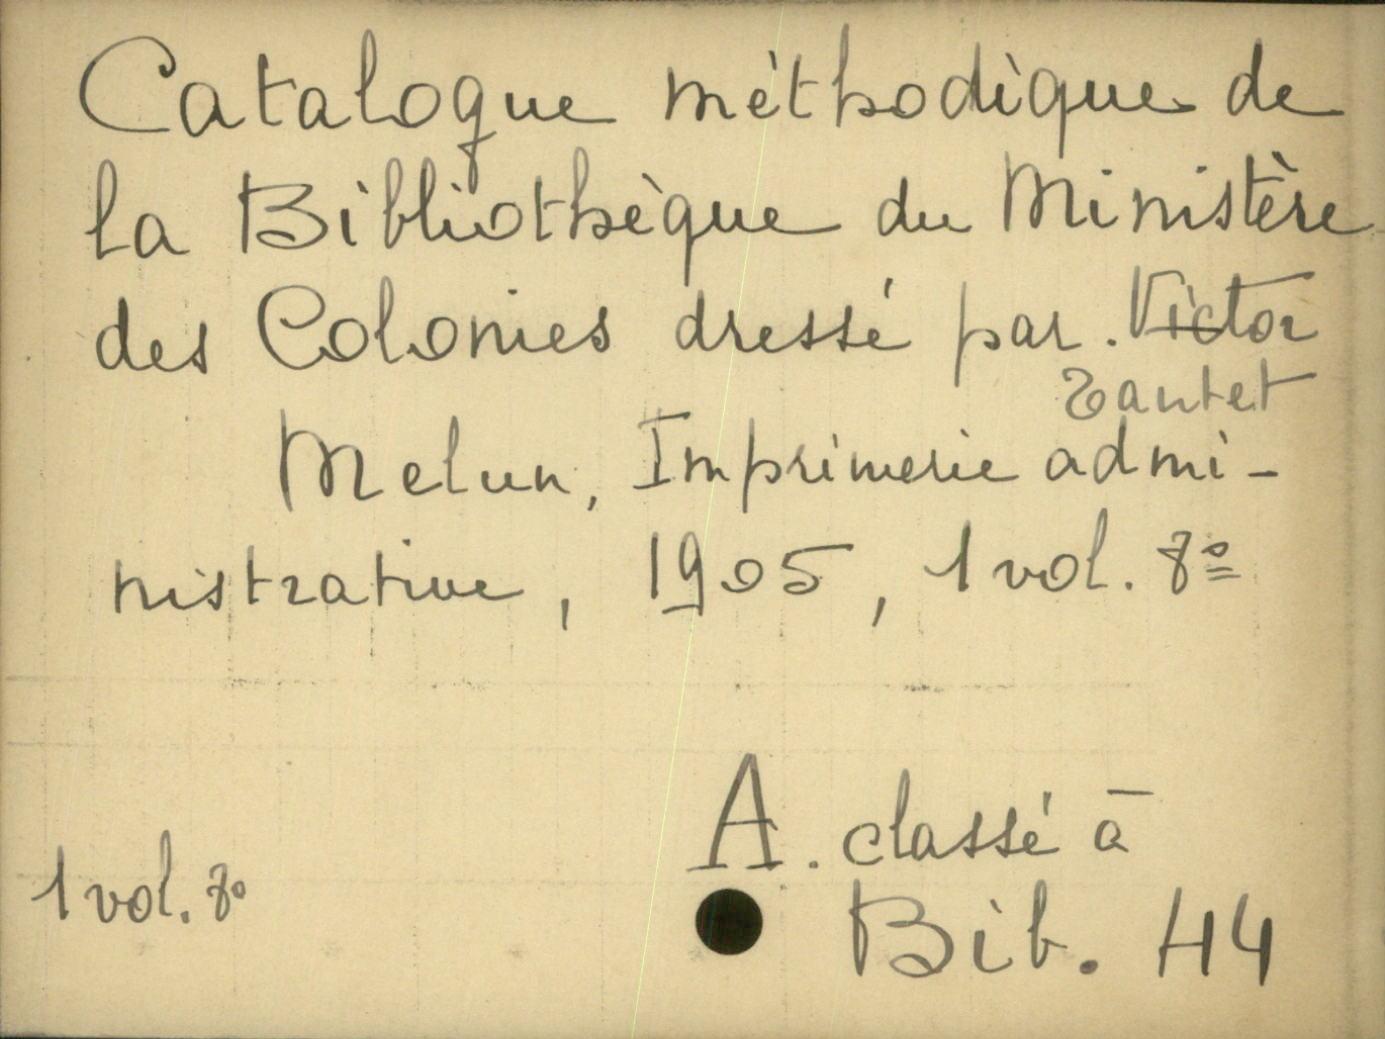 Catalogue méthodique de
la Bibliothèque du Ministère
des Colonies dressé par. Victor
Tantet
Melun, Imprimerie admi-
nistrative, 1905, 1 vol. 8º
A. classé à
1 vol. 8º
Bib. H4